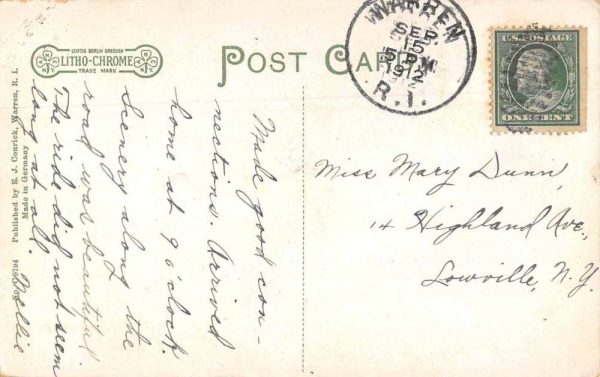 LEIPZIG BERLIN DRESDEN
LITHO-CHROME
TRADE MARK
POST CARD
WARREN
SEP
15
5 PM
1912
R.I.
U.S. POSTAGE
ONE CENT
Published by E. J. Conrick, Warren, R. I.
Made in Germany
Made good con-
nections. Arrived
home at 9 o'clock.
Scenery along the
road was beautiful.
The ride did not seem
long at all.
Nellie
Miss Mary Dunn,
14 Highland Ave.,
Lowville, N.Y.